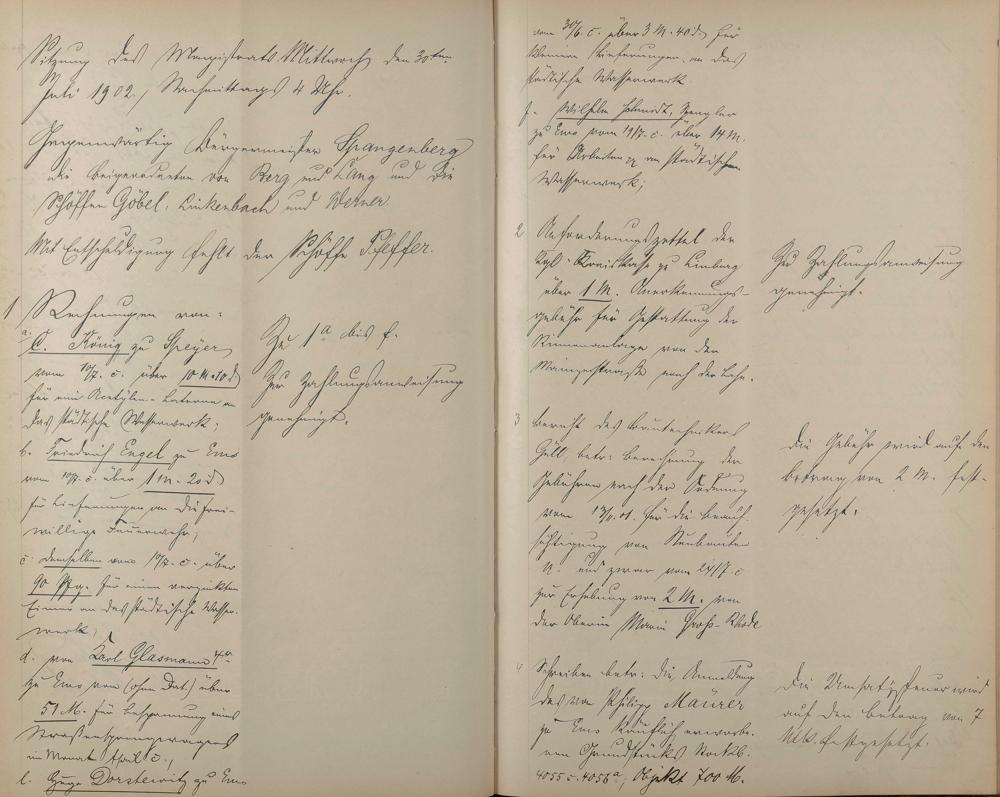 Sitzung des Magistrats Mittwoch, den 30ten
Juli 1902, Nachmittags 4 Uhr.
Gegenwärtig Bürgermeister Spangenberg
die Beigeordneten von Berg und Lang und die
Schöffen Göbel, Linkenbach und Werner.
Mit Entschuldigung fehlt der Schöffe Pfeffer.
1 Rechnungen von:
a. C. König zu Speyer,
vom 10/7. c. über 10 M. 70 d
für eine Acetylen-Laterne an
das städtische Wasserwerk;
b. Friedrich Engel zu Ems
vom c. über 1 M. 20 d
für Lieferungen an die frei-
willige Feuerwehr;
c. demselben vom 10/7. c. über
90 Pfg. für einen verzinkten
Eimer an das städtische Wasser-
werk,
d. von Karl Glasmann 4r
zu Ems vom (ohne Dat.) über
51 M. für Bespannung eines
Straßensprengwagens
im Monat April c.,
e. Hugo Dorstewitz zu Ems
Zu 1a bis f.
Zur Zahlungsanweisung
genehmigt.
vom 30/6. c. über 3 M. 40 d für
kleinere Lieferungen an das
städtische Wasserwerk
f. Wilhelm Schmidt, Spengler
zu Ems vom 19/7. c. über 14 M.
für Arbeiten pp am städtischen
Wasserwerk;
2 Anforderungszettel der
Kgl. Kreiskasse zu Limburg
über 1 M. Anerkennungs-
gebühr für Gestattung der
Rinnenanlage von der
Mainzerstraße nach der Lahn.
Zur Zahlungsanweisung
genehmigt.
3 Bericht des Bautechnikers
Gäll, betr: Berechnung der
Gebühren nach der Ordnung
vom 01. für die Beauf-
sichtigung von Neubauten
p. und zwar vom 24/7. c
zur Erhebung von 2 M. von
der Oberin Maria Groß-Rhode
Die Gebühr wird auf den
Betrag von 2 M. fest-
gesetzt.
4 Schreiben betr: die Anmeldung
des von Philipp Mäurer
zu Ems käuflich erworbe-
nen Grundstücks Stockb.
4055 c. 4056a, Objekt 700 M.
Die Umsatzsteuer wird
auf den Betrag von 7
Mk. festgesetzt.